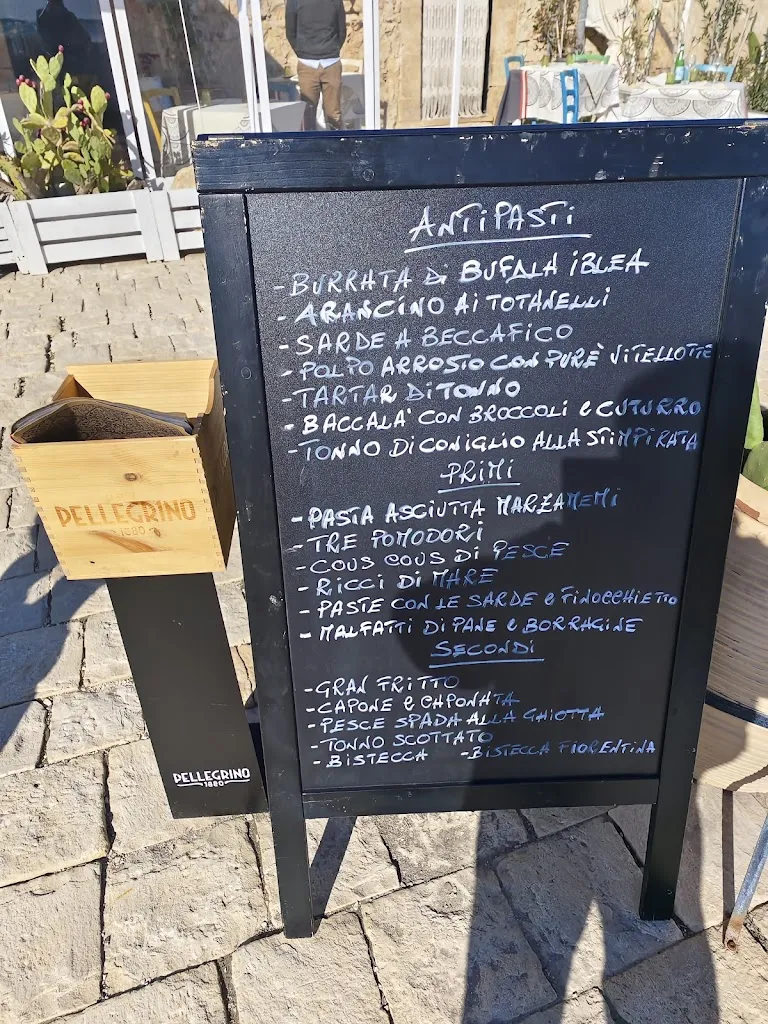 ANTIPASTI
- BURRATA Di BUFALA iBLEA
- ARANCINO Ai TOTANELLI
- SARDE A BECCAFICO
- POLPO ARROSTO CON PURÈ VITELLOTTE
- TARTAR Di TONNO
- BACCALA' CON BROCCOLI e CUTURRO
- TONNO Di CONIGLIO ALLA STIMPIRATA
PRIMI
- PASTA ASCIUTTA MARZAMEMI
- TRE POMODORI
- COUS COUS Di PESCE
- RICCI Di MARE
- PASTE CON LE SARDE e FINOCCHIETTO
- MALFATTI Di PANE e BORRAGINE
SECONDI
- GRAN FRITTO
- CAPONE e CAPONATA
- PESCE SPADA ALLA GHIOTTA
- TONNO SCOTTATO
- BISTECCA - BISTECCA FIORENTINA
PELLEGRINO
1880
PELLEGRINO
1880